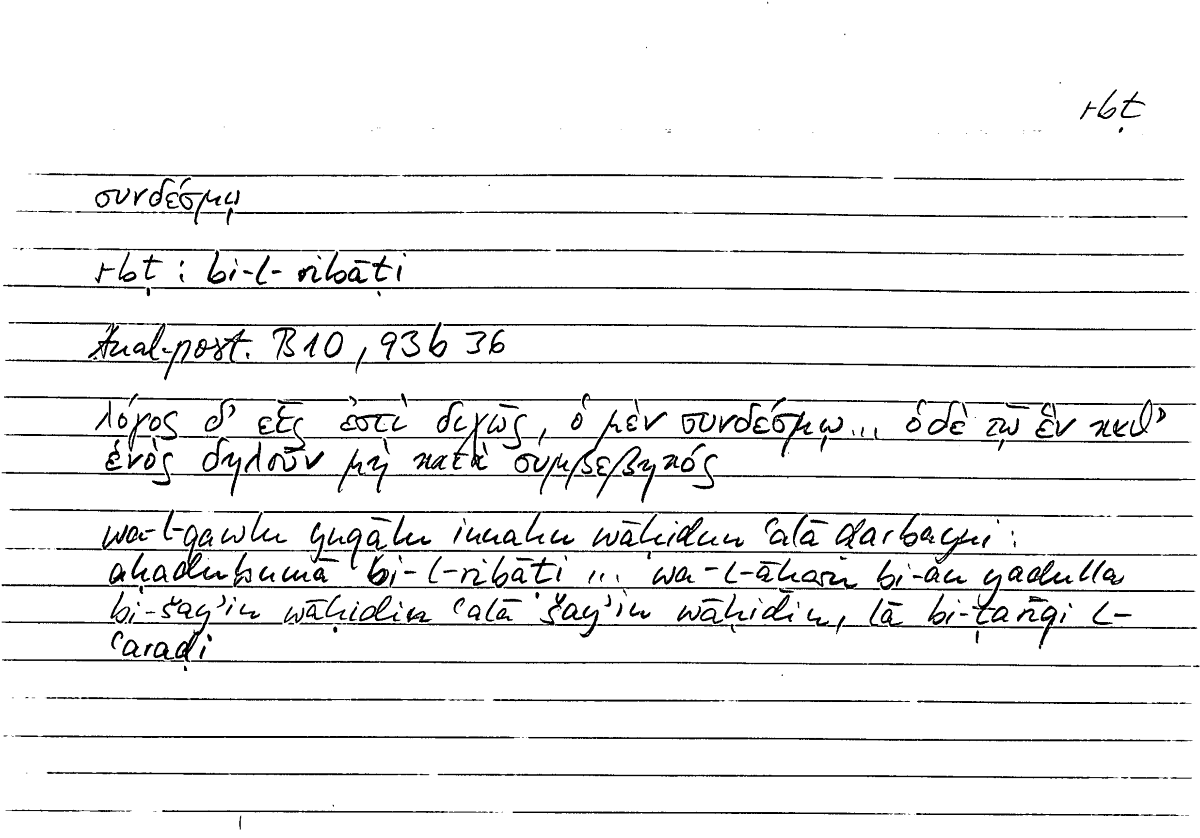 rbṭ
συνδέσμῳ
rbṭ : bi-l-ribāṭi
Anal.post. B10, 93b 36
λόγος δ' εἷς ἐστὶ διχῶς, ὁ μὲν συνδέσμῳ... ὁ δὲ τῷ ἓν καθ'
ἑνὸς δηλοῦν μὴ κατὰ συμβεβηκός
wa-l-qawlu yuqālu innahu wāḥidun ʿalā ḍarbayni :
aḥaduhumā bi-l-ribāṭi ... wa-l-āḫaru bi-an yadulla
bi-šayʾin wāḥidin ʿalā šayʾin wāḥidin, lā bi-ṭarīqi l-
ʿaraḍi